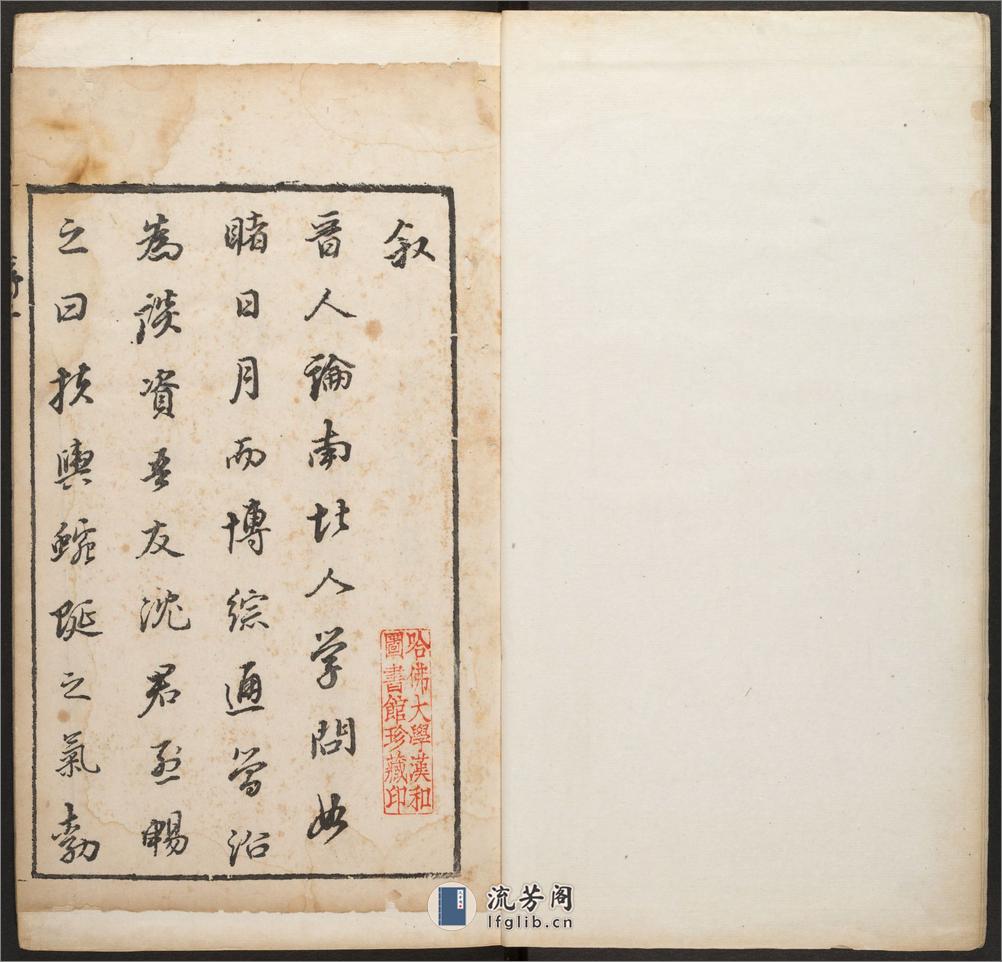 叙
晋人論南北人学問如
睹日月而博綜通嘗沿
為談資吾友沈君烈暢
之曰扶輿蜿蜒之氣勃
哈佛大學漢和
圖書館珍藏印
流芳阁
lfglib.cn